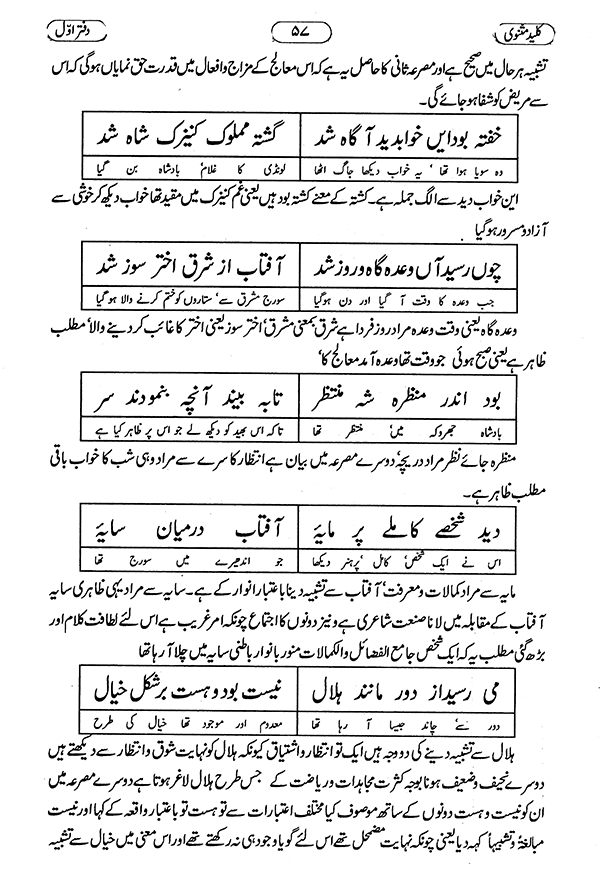 کلید مثنوی ۵۷ دفتر اوّل
تشبیہ ہر حال میں صحیح ہے اور مصرعہ ثانی کا حاصل یہ ہے کہ اس معالج کے مزاج و افعال میں قدرت حق نمایاں ہوگی کہ اس
سے مریض کو شفا ہو جائے گی۔
خفتہ بود ایں خواب دید آگاہ شد گشتہ مملوک کنیزک شاہ شد
وہ سویا ہوا تھا' یہ خواب دیکھا جاگ اٹھا لونڈی کا غلام' بادشاہ بن گیا
این خواب دید سے الگ جملہ ہے۔ گشتہ کے معنے گشتہ بود ہیں یعنی غم کنیزک میں مقید تھا خواب دیکھ کر خوشی سے
آزاد و مسرور ہو گیا
چوں رسید آں وعدہ گاہ و روز شد آفتاب از شرق اختر سوز شد
جب وعدہ کا وقت آ گیا اور دن ہوگیا سورج مشرق سے' ستاروں کو ختم کرنے والا ہو گیا
وعدہ گاہ یعنی وقت وعدہ مراد روز فردا ہے شرق بمعنی مشرق' اختر سوز یعنی اختر کا غائب کر دینے والا' مطلب
ظاہر ہے یعنی صبح ہوئی جو وقت تھا وعدہ آمد معالج کا'
بود اندر منظرہ شہ منتظر تابہ بیند آنچہ بنمودند سر
بادشاہ جھروکہ میں' منتظر تھا تاکہ اس بھید کو دیکھ لے جو اس پر ظاہر کیا ہے
منظرہ جائے نظر مراد دریچہ' دوسرے مصرعہ میں بیان ہے انتظار کا سرے سے مراد وہی شب کا خواب باقی
مطلب ظاہر ہے۔
دید شخصے کاملے پر مایۂ آفتاب درمیان سایۂ
اس نے ایک شخص' کامل' پرہنر دیکھا جو اندھیرے میں سورج تھا
مایہ سے مراد کمالات و معرفت' آفتاب سے تشبیہ دینا باعتبار انوار کے ہے۔ سایہ سے مراد یہی ظاہری سایہ
آفتاب کے مقابلہ میں لانا صنعت شاعری ہے و نیز دونوں کا اجتماع چونکہ امر غریب ہے اس لئے لطافت کلام اور
بڑھ گئی مطلب یہ کہ ایک شخص جامع الفضائل و الکمالات منور بانوار باطنی سایہ میں چلا آ رہا تھا
می رسید از دور مانند ہلال نیست بود و ہست بر شکل خیال
دور سے' چاند جیسا آ رہا تھا معدوم اور موجود تھا خیال کی طرح
ہلال سے تشبیہ دینے کی دو وجہ ہیں ایک تو انتظار و اشتیاق کیونکہ ہلال کو نہایت شوق و انتظار سے دیکھتے ہیں
دوسرے نحیف و ضعیف ہونا بوجہ کثرت مجاہدات و ریاضت کے جس طرح ہلال لاغر ہوتا ہے دوسرے مصرعہ میں
ان کو نیست و ہست دونوں کے ساتھ موصوف کیا مختلف اعتبارات سے تو ہست تو باعتبار واقعہ کے کہا اور نیست
مبالغۃً و تشبیہاً کہہ دیا یعنی چونکہ نہایت مضمحل تھے اس لئے گویا وجود ہی نہ رکھتے تھے اور اس معنی میں خیال سے تشبیہ